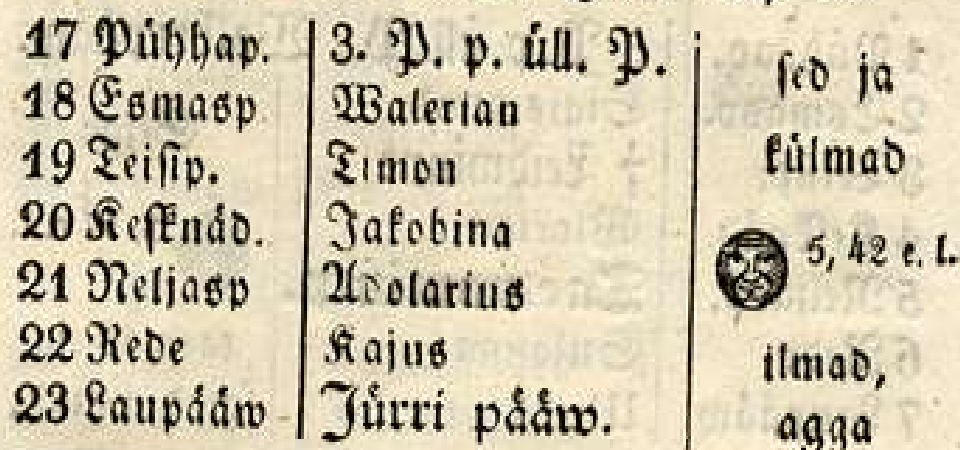 17 Pühhap. 3. P. p. üll. P.
18 Esmasp Walerian
19 Teisip. Timon
20 Kesknäd. Jakobina
21 Neljasp Adolarius
22 Rede Kajus
23 Laupääw Jürri pääw.
sed ja
külmad
5, 42 e. l.
ilmad,
agga